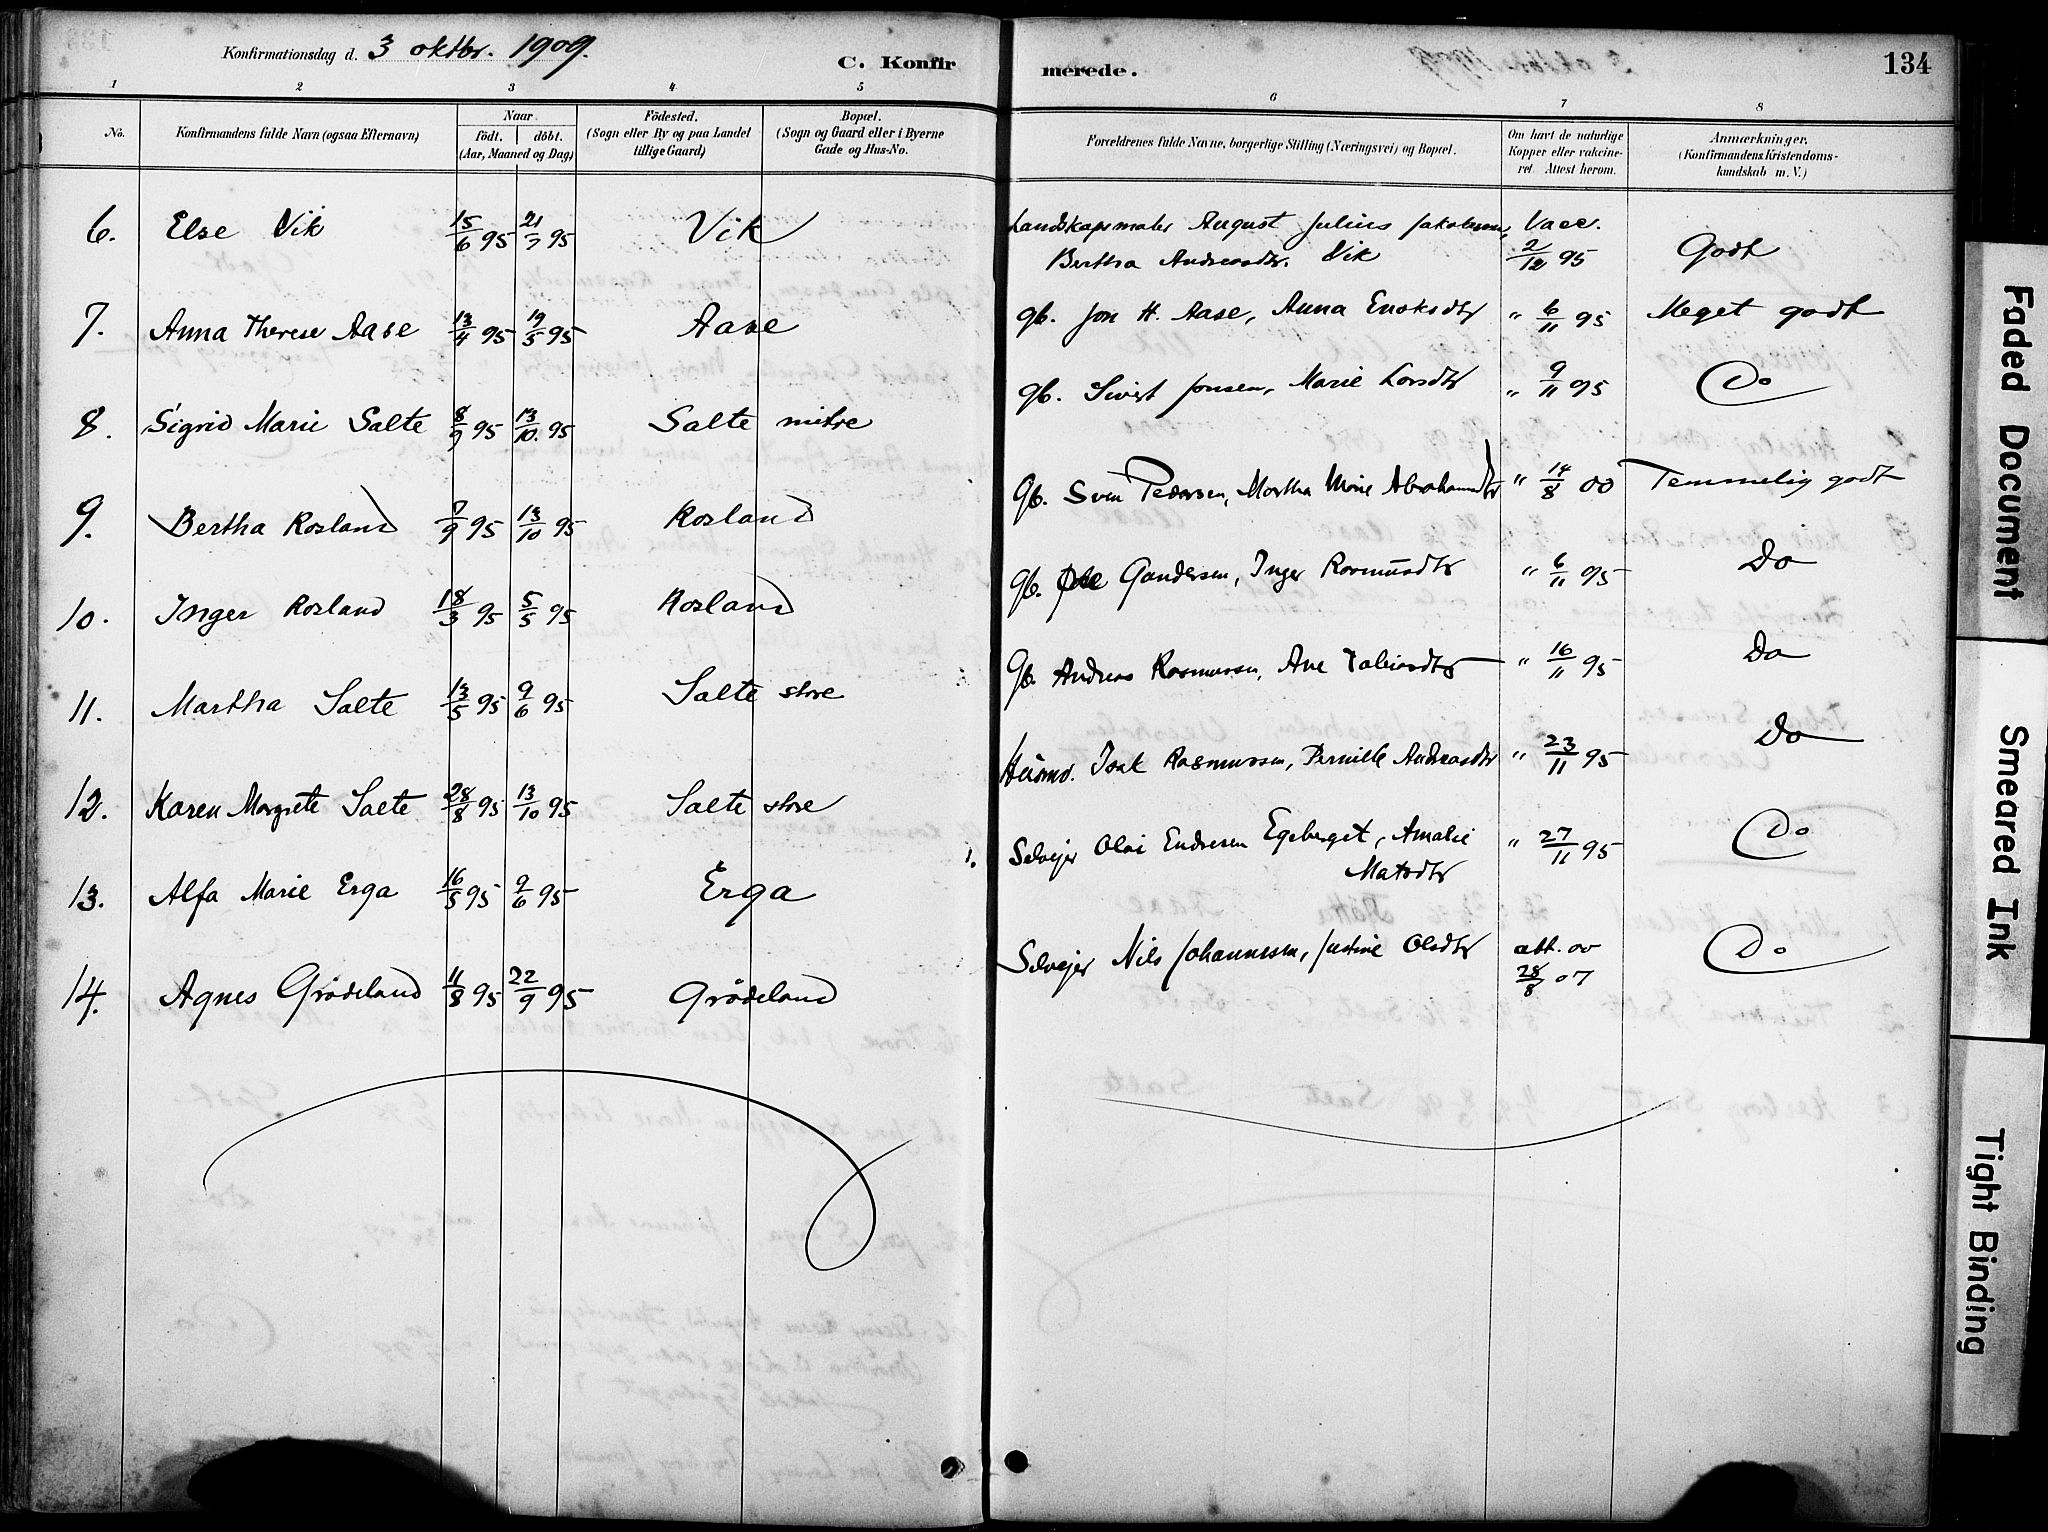 Konfirmationsdag d. 3 oktbr. 1909.
C. Konfirmerede.
134
1 2 3 4 5 6 7 8
No.
Konfirmandens fulde Navn (ogsaa Efternavn)
Naar
födt. döbt.
(Aar, Maaned og Dag)
Födested.
(Sogn eller By og paa Landet tillige Gaard)
Bopæl.
(Sogn og Gaard eller i Byerne Gade og Hus-No.
Forældrenes fulde Navne, borgerlige Stilling (Næringsvei) og Bopæl.
Om havt de naturlige Kopper eller vakcineret. Attest herom.
Anmærkninger.
(Konfirmandens Kristendomskundskab m. V.)
6. Else Vik 15/6 95 21/7 95 Vik Landskapsmaler August Julius Jakobsen, Vacc.
Bertha Andreasdtr. Vik 2/12 95 Godt
7. Anna Therese Aase 13/4 95 19/5 95 Aase gb. Jon H. Aase, Anna Enoksdtr " 6/11 95 Meget godt
8. Sigrid Marie Salte 8/9 95 13/10. 95 Salte mitre gb. Sivert Jonsen, Marie Larsdtr " 9/11 95 Do
9. Bertha Rosland 7/9 95 13/10 95 Rosland gb. Sven Pedersen, Martha Marie Abrahamsdtr " 14/8 00 Temmelig godt
10. Inger Rosland 18/3 95 5/5 95 Rosland gb. Ole Gundersen, Inger Rasmusdtr " 6/11 95 Do
11. Martha Salte 13/5 95 9/6 95 Salte store gb. Andreas Rasmussen, Ane Tobiasdtr " 16/11 95 Do
12. Karen Margrete Salte 28/8 95 13/10 95 Salte store Husmd. Isak Rasmussen, Pernille Andreasdtr " 23/11 95 Do
13. Alfa Marie Erga 16/5 95 9/6 95 Erga Selvejer Olai Endresen Egeberget, Amalie
Matsdtr " 27/11 95 Do
14. Agnes Grödeland 11/8 95 22/9 95 Grödeland Selvejer Nils Johannessen, Justine Olsdtr att. ov
28/8 07 Do
Faded Document
Smeared Ink
Tight Binding